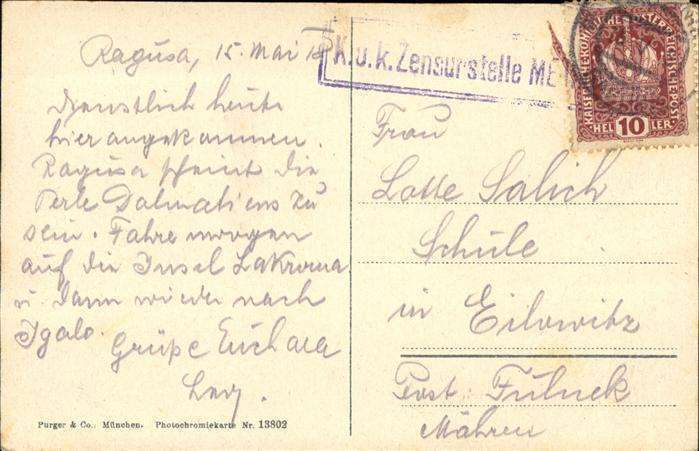 Ragusa, 15. Mai
Dienstlich heute
hier angekommen.
Ragusa scheint die
Perle Dalmatiens zu
sein. Fahre morgen
auf die Insel Lakroma
u. dann wieder nach
Igalo.
Grüße Euch
K.u.k. Zensurstelle
KAISERLICHE KÖNIGLICHE ÖSTERREICHISCHE POST
HELLER
10
Frau
Lotte Salich
Schule
in Eilowitz
Post: Fulnek
Mähren
Purger & Co., München. Photochromiekarte Nr. 13802